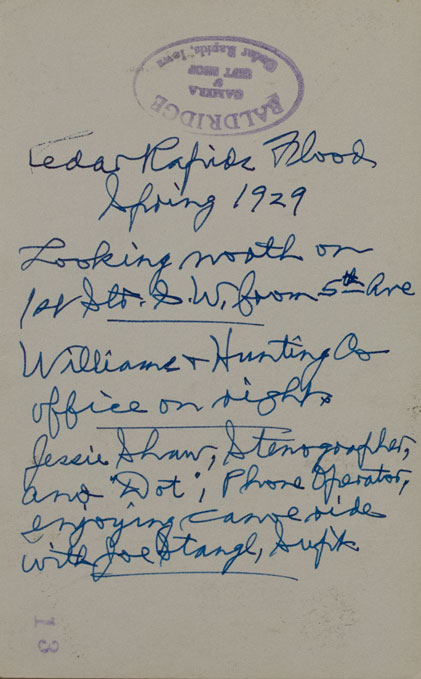 BALDRIDGE
CAMERA
&
GIFT SHOP
Cedar Rapids, Iowa
Cedar Rapids Flood
Spring 1929
Looking north on
1st Str. S.W. from 5th Ave
Williams & Hunting Co
office on right.
Jessie Shaw, Stenographer,
and "Dot", Phone Operator,
enjoying canoe ride
with Joe Stangl, Supt.
13